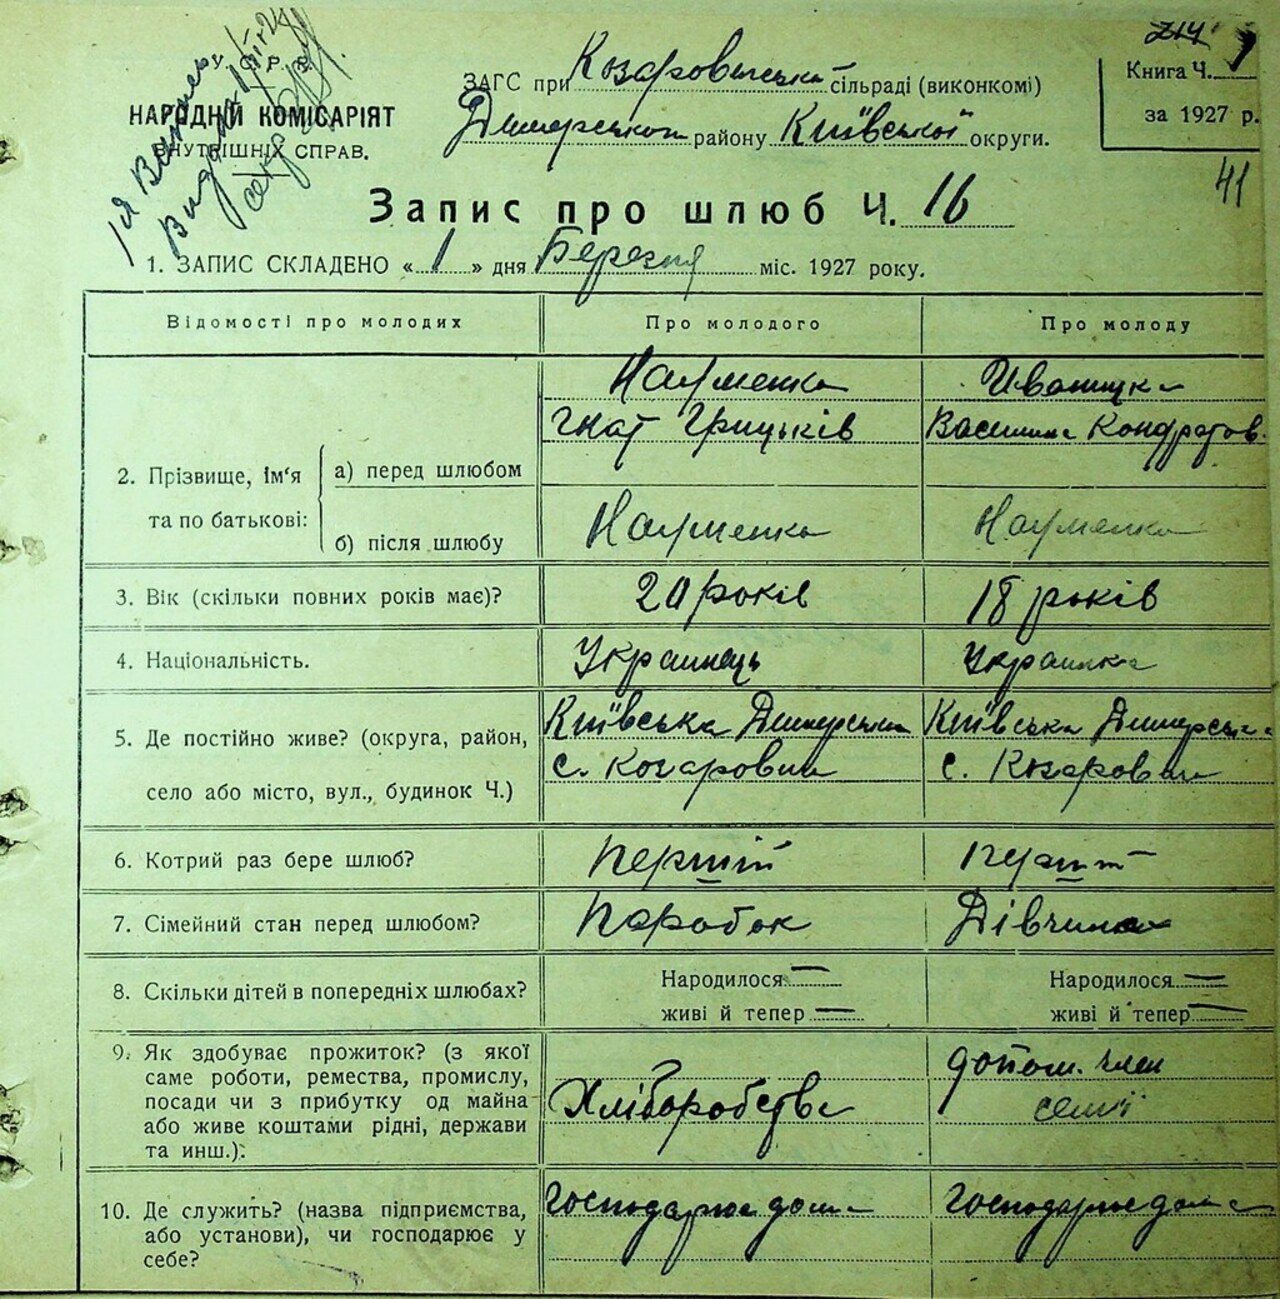 У. С. Р. Р.
НАРОДНІЙ КОМІСАРІЯТ
ВНУТРІШНІХ СПРАВ.
ЗАГС при Козаровицькій сільраді (виконкомі)
Димерського району Київської округи.
214
Книга Ч. 1
за 1927 р.
41
Запис про шлюб Ч. 16
1. ЗАПИС СКЛАДЕНО « 1 » дня Березня міс. 1927 року.
Відомості про молодих Про молодого Про молоду
2. Прізвище, ім‘я та по батькові:
а) перед шлюбом
Науменко
Гнат Грицьків
Василина Кондратов.
б) після шлюбу
Науменко Науменко
3. Вік (скільки повних років має)? 20 років 18 років
4. Національність. Украинець Украинка
5. Де постійно живе? (округа, район,
село або місто, вул., будинок Ч.)
Київська Димерська
с. Козаровичи
Київська Димерська
с. Козаровичи
6. Котрий раз бере шлюб? Перший
7. Сімейний стан перед шлюбом? Паробок Дівчина
8. Скільки дітей в попередніх шлюбах?
Народилося — Народилося —
живі й тепер — живі й тепер —
9. Як здобуває прожиток? (з якої
саме роботи, ремества, промислу,
посади чи з прибутку од майна
або живе коштами рідні, держави
та инш.):
Хліборобство
допом. член
семії
10. Де служить? (назва підприємства,
або установи), чи господарює у
себе?
Господарює дома Господарює дома